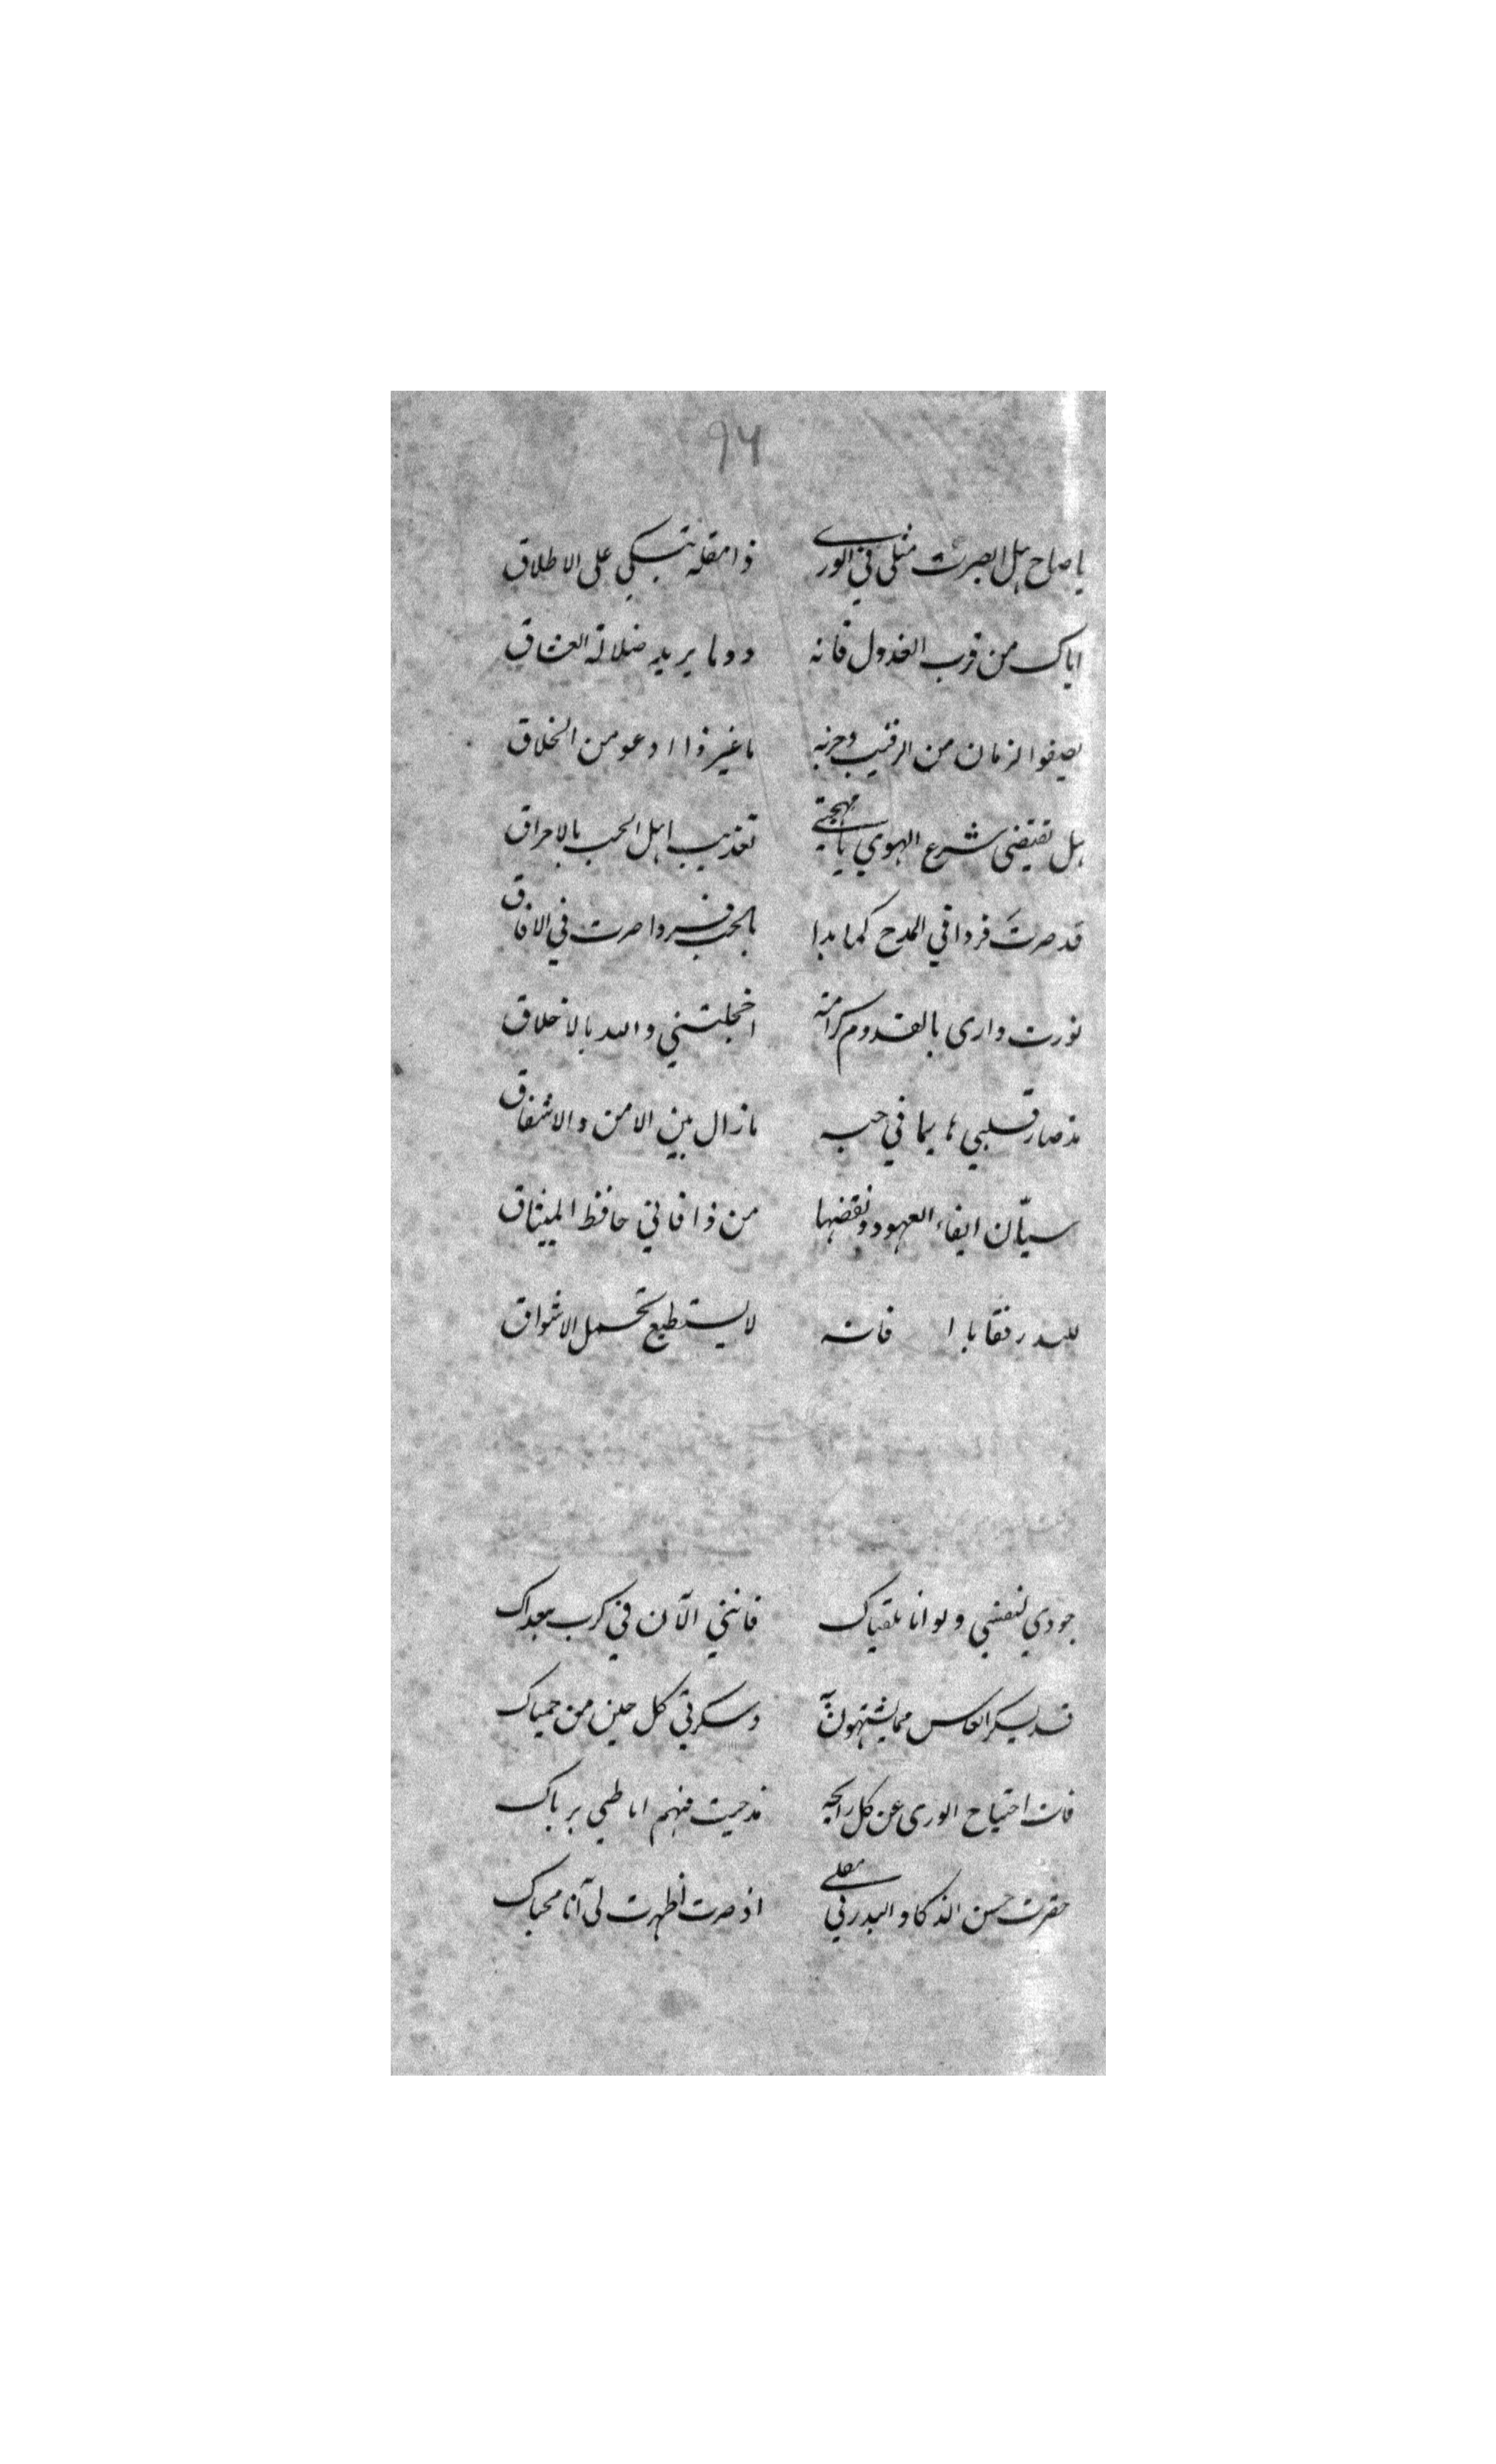 ٩٦
يا صاح هل ابصرت مثلي في الورى ذا مقلة تبكي على الاطلاق
اياك من قرب العذول فانه دوما يريد ضلالة العشاق
يصفو الزمان من الرقيب وحزبه ما غير ذا ادعو من الخلاق
هل تقتضى شرع الهوي يا مهجتي تعذيب اهل الحب بالاحراق
قد صرتَ فردا في المدح كما بدا بالحب فردا صرت في الافاق
نورت دارى بالقدوم كرامة اخجلتني والله بالاخلاق
مذ صار قلبي هايما في حبه ما زال بين الامن والاشفاق
سيّان ايفاء العهود ونقضها من ذا فاني حافظ الميثاق
للبدر رفقا يا فانه لا يستطيع تحمل الاشواق
جودي لنفسي ولو انا بلقياك فانني الآن في كرب ببعداك
قد يسكر الكاس مما يشتهون وسكرتي كل حين من حمياك
فات احتياج الورى عن كل رائحه مذ حيت منهم اطيبي برياك
حقرت حسن الذكا والبدر في مقلي اذ صرت اظهرت لي آنا محياك